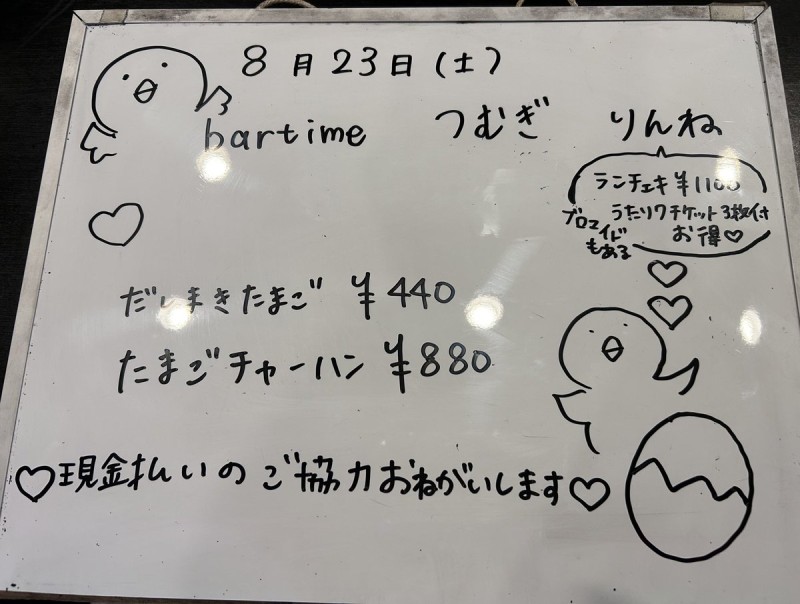 8月23日(土)
bartime つむぎ りんね
ランチェキ ¥1100
うたリクチケット3枚付
お得♡
ブロマイド
もある
だしまきたまご ¥440
たまごチャーハン ¥880
♡現金払いのご協力おねがいします♡